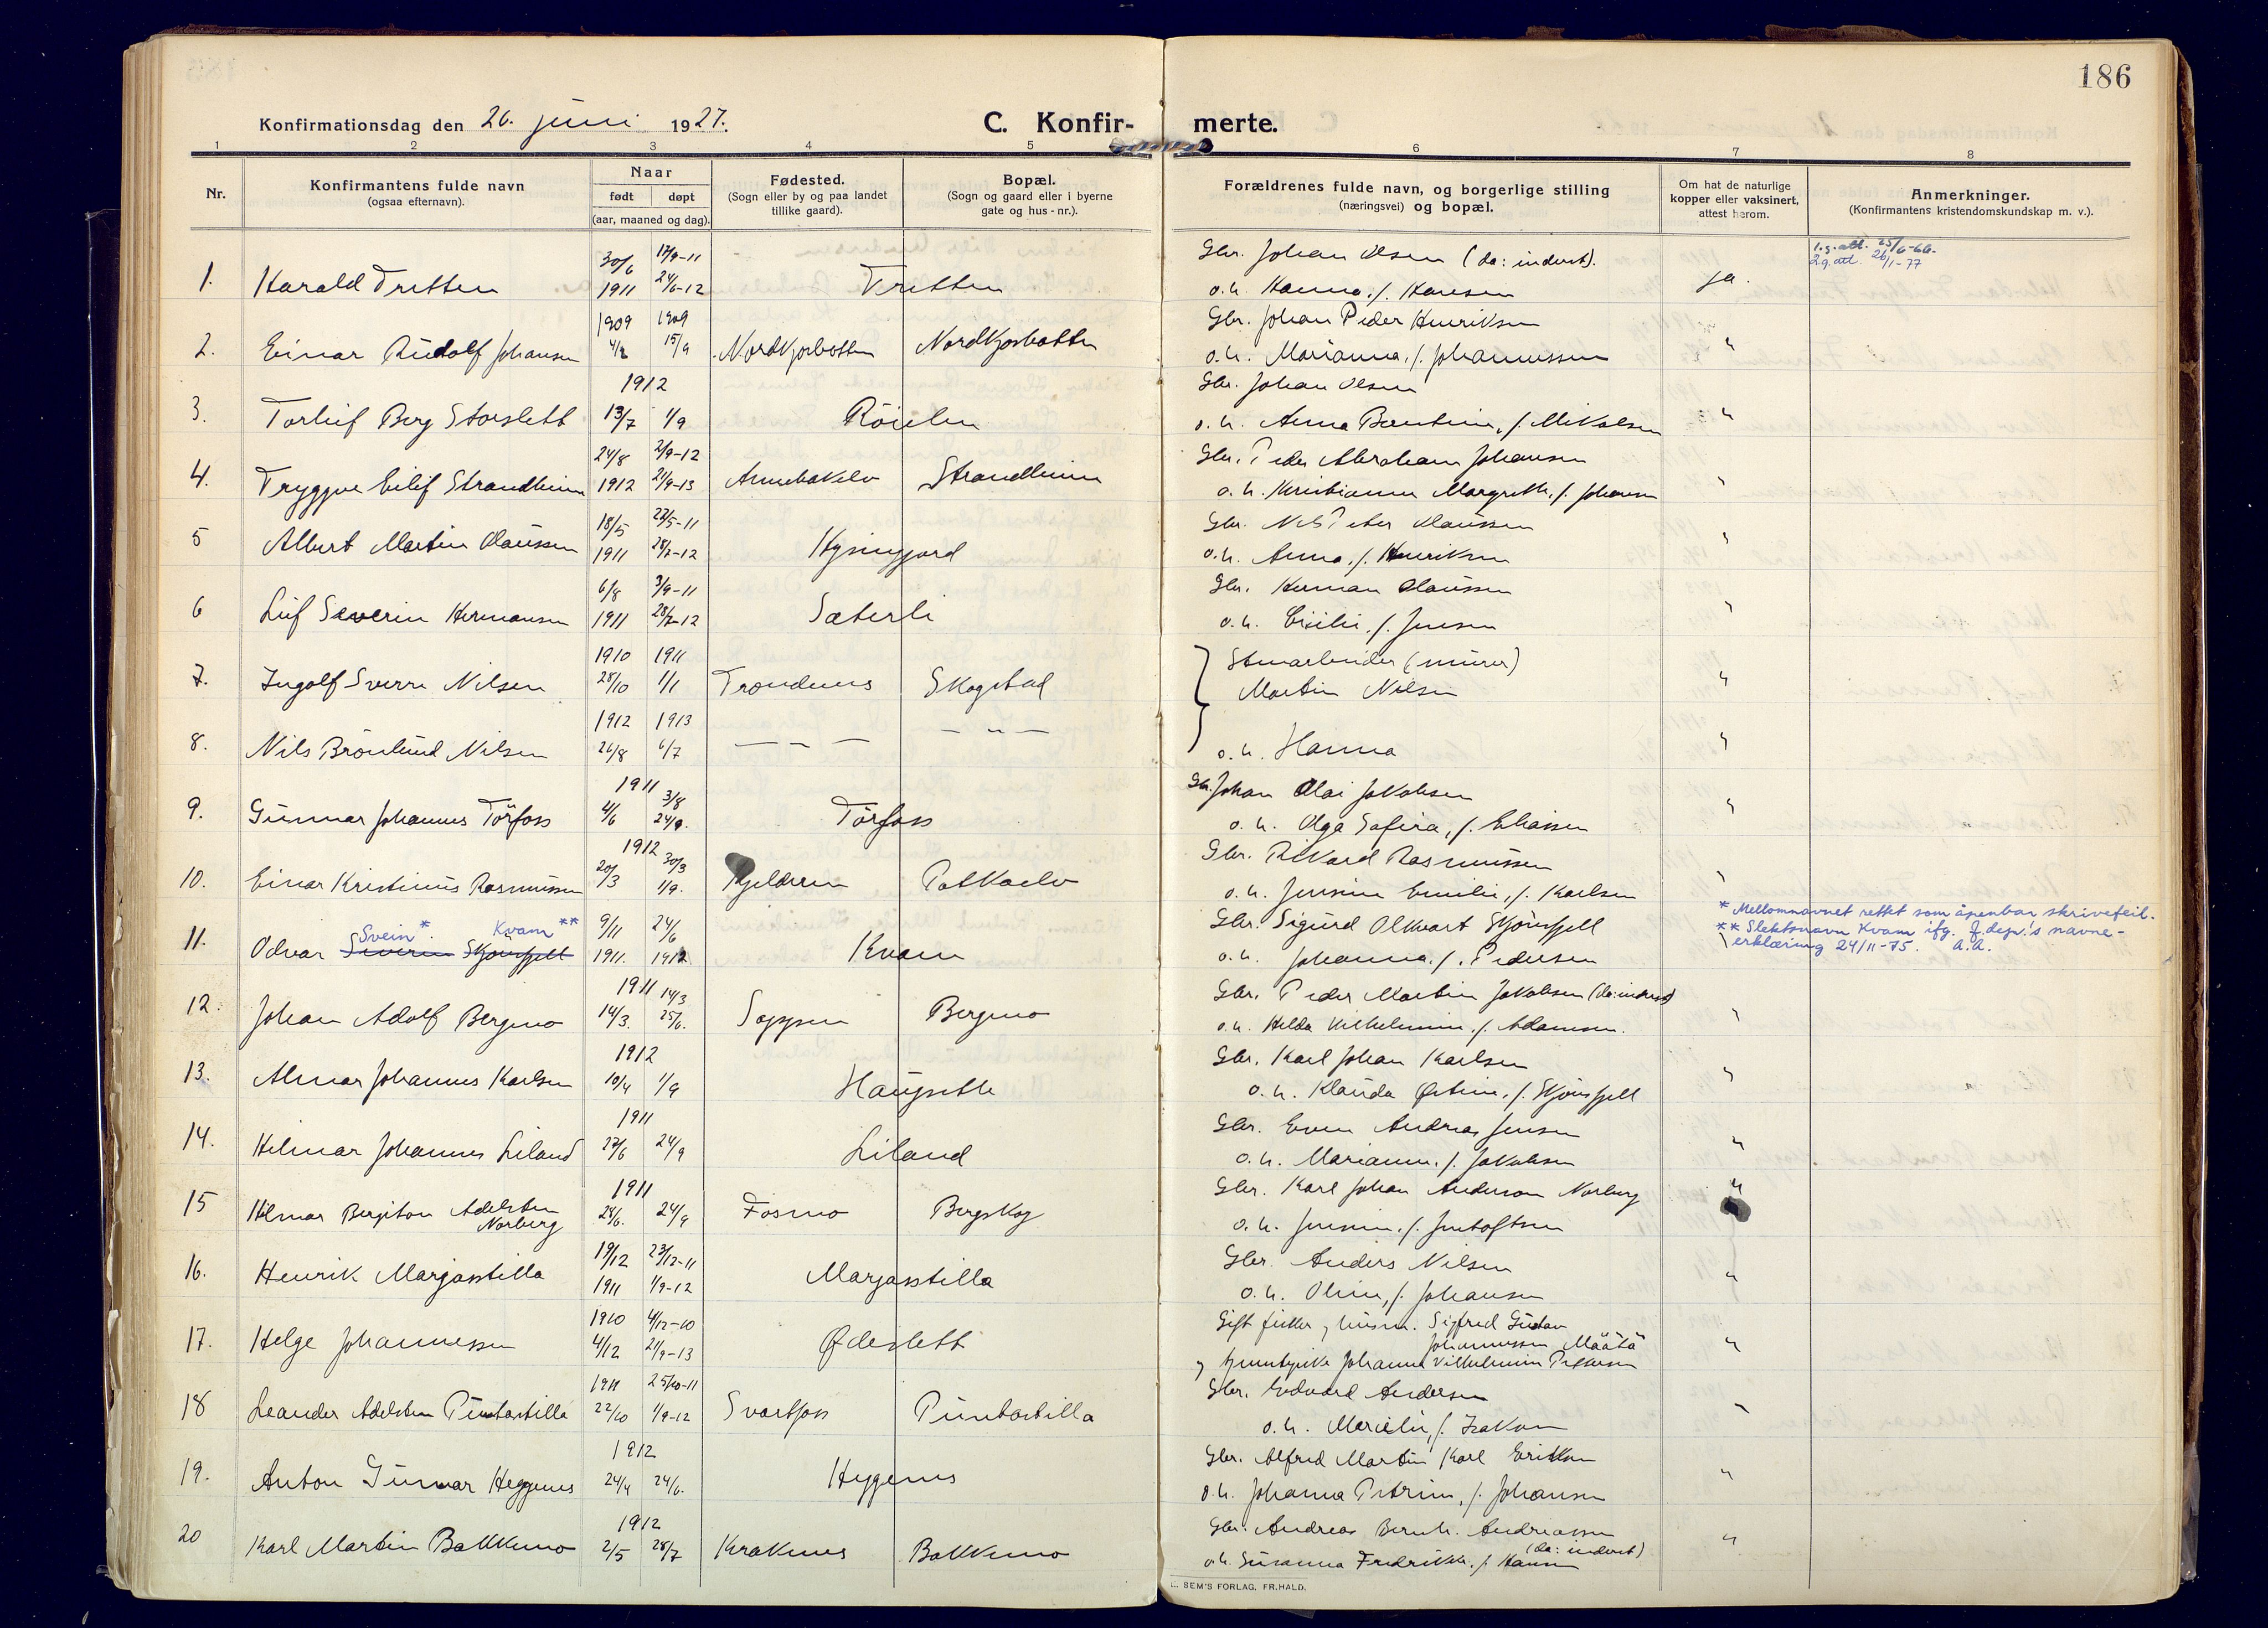 186
Konfirmationsdag den 26. juni 1927.
C. Konfirmerte.
1 2 3 4 5 6 7 8
Nr.
Konfirmantens fulde navn
(ogsaa efternavn).
Naar
født døpt
(aar, maaned og dag).
Fødested.
(Sogn eller by og paa landet
tillike gaard).
Bopæl.
(Sogn og gaard eller i byerne
gate og hus-nr.).
Forældrenes fulde navn, og borgerlige stilling
(næringsvei) og bopæl.
Om hat de naturlige
kopper eller vaksinert,
attest herom.
Anmerkninger.
(Konfirmantens kristendomskundskap m. v.).
30/6 17/9-11 Gbr. Johan Olsen (da: inderst). 1.g. att. 25/6-66.
1. Harald Tretten 1911 24/6-12 Tretten o.h. Hanna, f. Hansen ja. 2.g. att. 26/1-77
1909 1909 Gbr. Johan Peder Henriksen
2. Einar Rudolf Johansen 4/8 15/9 Nordkjosbotten Nordkjosbotten o.h. Marianna, f. Johannessen "
1912 Gbr. Johan Olsen
3. Torleif Berg Storslett 13/7 1/9 Röielen o.h. Anna Bentine, f. Mikalsen "
24/8 2/9-12 Gbr. Peder Abraham Johansen
4. Tryggve Eilif Strandheim 1912 21/9-13 Strandheim o.h. Kristianna Margrethe, f. Johansen "
18/5 22/5-11 Gbr. Nils Peter Olaussen
5 Albert Martin Olaussen 1911 28/7-12 Hysingjord o.h. Anna, f. Henriksen "
6/8 3/9-11 Gbr. Herman Olaussen
6 Leif Severin Hermansen 1911 28/7-12 Sæterli o.h. Cicilie, f. Jensen "
1910 1911 Stenarbeider (murer)
7. Ingolf Sverre Nilsen 28/10 1/1 Trondenes Skogstad Martin Nilsen "
1912 1913
8. Nils Brönlund Nilsen 26/8 6/7 — — — – " – o.h. Hanna "
1911 3/8 Gbr. Johan Olai Jakobsen
9. Gunnar Johannes Törfoss 4/6 24/9. Törfoss o.h. Olga Safira, f. Eliassen "
1912 30/3 Gbr. Rikard Rasmussen
10. Einar Kristinus Rasmussen 20/3 1/9. Kjelderen o.h. Jensine Emilie, f. Karlsen "
Svein * Kvam ** 9/11 24/6 Gbr. Sigurd Olkvart Skjönsfjell
11. Odvar Severin Skjönsfjell 1911. 1912 Kvam o.h. Johanna, f. Pedersen "
* Mellomnavnet rettet som åpenbar skrivefeil.
** Slektsnavn Kvam ifg. J.dep.'s navne-
erklæring 24/11-75. A.A.
1911 14/3 Gbr. Peder Martin Jakobsen (da: inderst)
12. Johan Adolf Bergmo 14/3. 25/6. Soppen Bergmo o.h. Helda Vilhelmine, f. Adamsen. "
1912 Gbr. Karl Johan Karlsen
13. Almar Johannes Karlsen 10/4 1/9 Haugsette o.h. Klauda Østine, f. Skjönsfjell "
1911 Gbr. Even Andreas Jensen
14. Hilmar Johannes Liland 27/6 24/9 Liland o.h. Marianne, f. Jakobsen "
1911 Gbr. Karl Johan Anderson Norberg "
15 Hilmar Bergiton Adelsten Norberg 28/6. 24/9 Fosmo Bergskog o.h. Jensine, f. Jentoftsen
19/12 23/12-11 Gbr. Anders Nilsen
16. Henrik Marjastilla 1911 1/9-12 Marjastilla o.h. Oline, f. Johansen "
1910 4/12-10 Gift fisker, husm. Sigfred Gustav
Johannessen Määtä
17. Helge Johannessen 4/12 21/9-13 Ødeslett Johanna Vilhelmine Pettersen "
1911 25/10-11 Gbr. Edvard Andersen
18 Leander Adelsten Puntastilla 22/10 1/9-12 Svartfoss Puntastilla o.h. Marielie, f. Isaksen "
1912 Gbr. Alfred Martin Karl Eriksen
19. Anton Gunnar Heggenes 24/4 24/6. Heggenes o.h. Johanna Petrine, f. Johansen "
1912 Gbr. Andreas Bernh. Andreassen
(da: inderst)
20 Karl Martin Bakkemo 2/5 28/7 Kraknes Bakkemo o.h. Susanna Fredrikke, f. Hansen "
SEM'S FORLAG, FR.HALD.